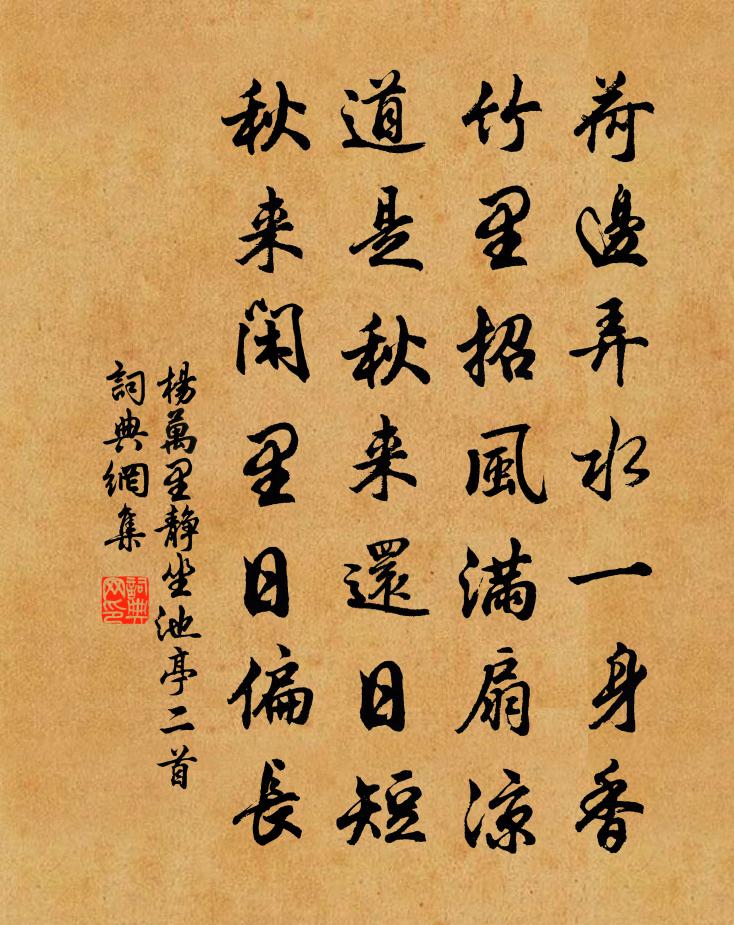 荷邊弄水一身香
竹里招風滿扇涼
道是秋来還日短
秋来閑里日偏長
楊萬里靜坐池亭二首
詞典網集
詞典网印